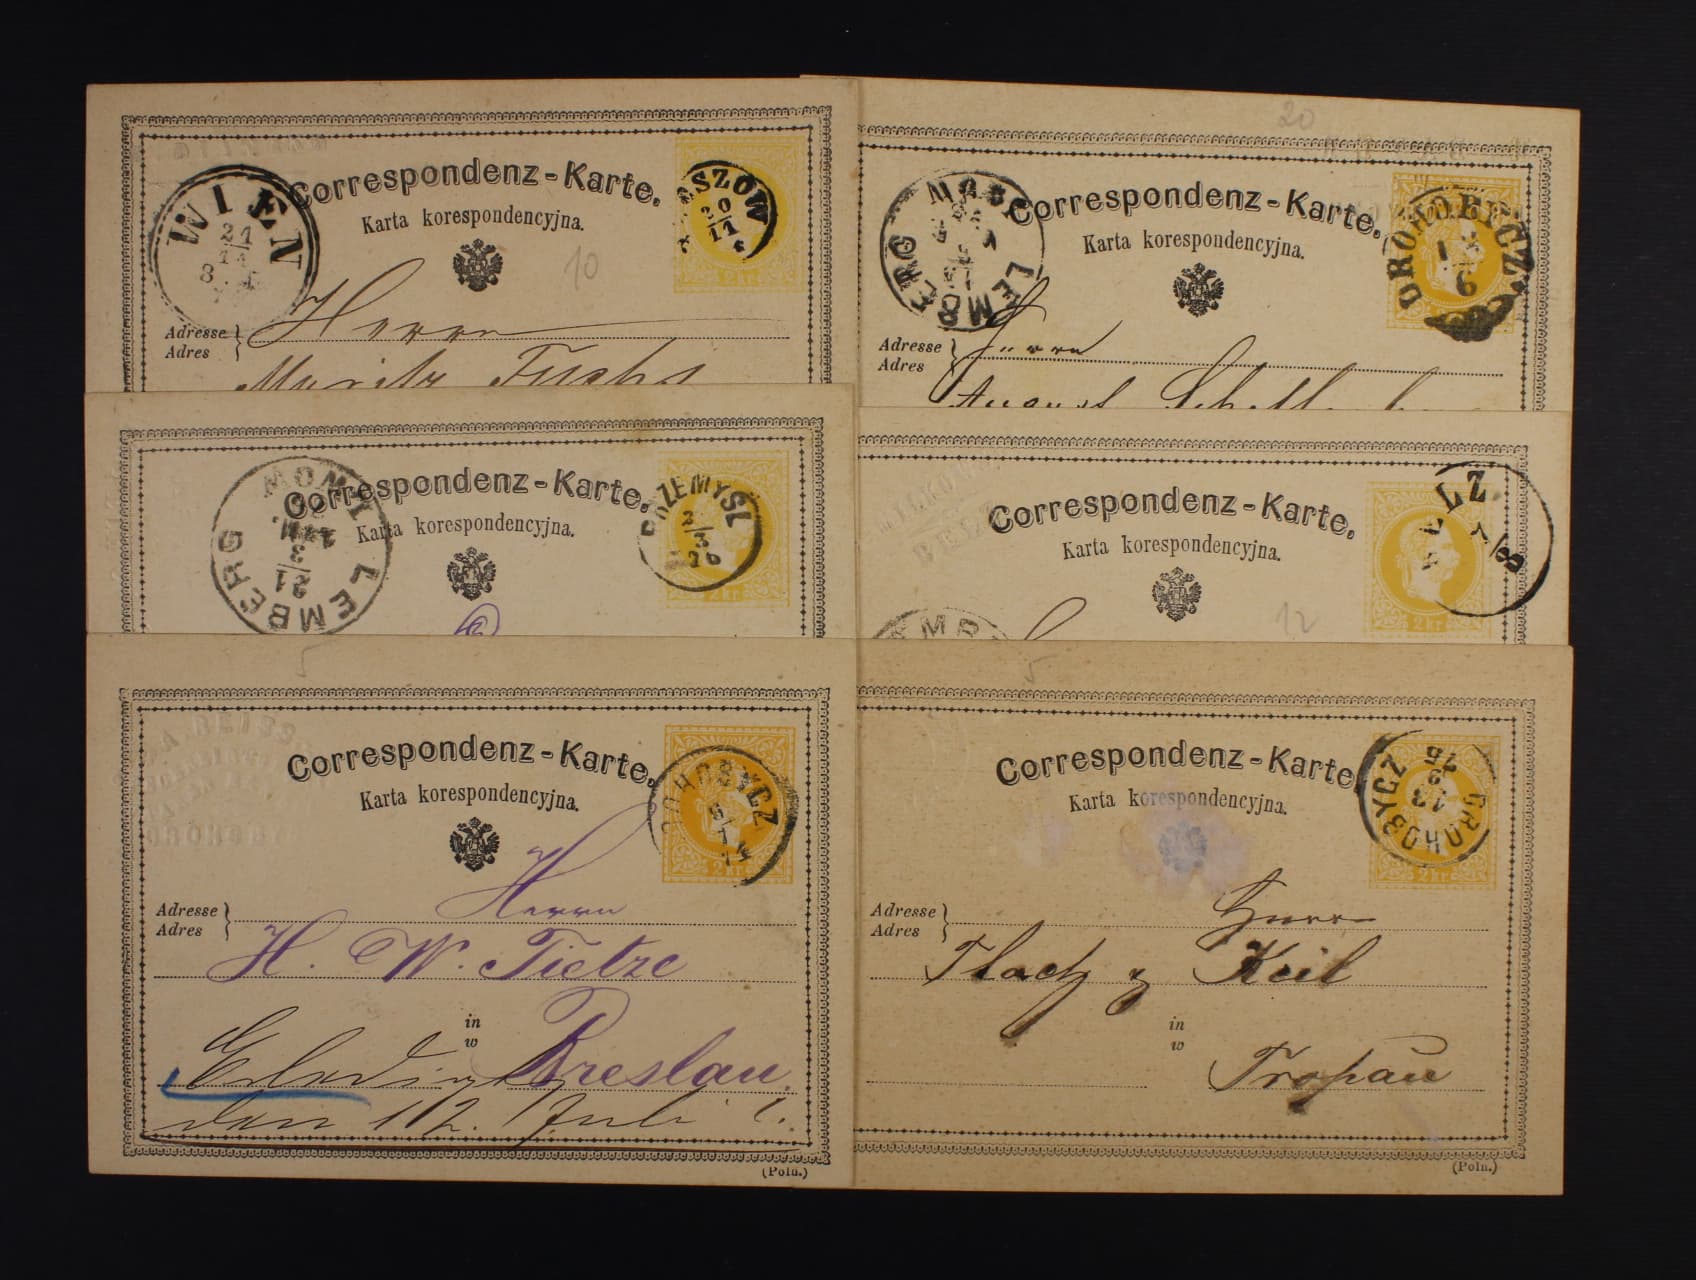 Correspondenz-Karte.
Karta korespondencyjna.
WIEN
21
11
20
11
2 kr
10
Adresse
Adres
Herrn
Moritz Fuchs
20
Correspondenz-Karte.
Karta korespondencyjna.
LEMBERG
DROHOBYCZ
6
Adresse
Adres
Herrn
August
Correspondenz-Karte.
Karta korespondencyjna.
LEMBERG
21
3
PRZEMYSL
2
3
76
2 kr
Correspondenz-Karte.
Karta korespondencyjna.
BEŁZ
7/8
2 kr
12
5
Correspondenz-Karte.
Karta korespondencyjna.
DROHOBYCZ
2 kr
Adresse
Adres
Herrn
H. W. Tietze
in
w
Breslau.
den 1/2. Juli
(Poln.)
5
Correspondenz-Karte.
Karta korespondencyjna.
DROHOBYCZ
13
9
75
2 kr
Adresse
Adres
Herrn
Keil
in
w
Tropau
(Poln.)